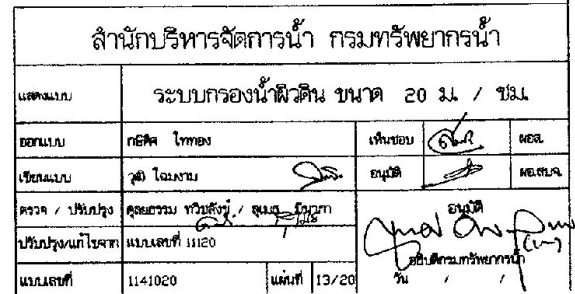 สำนักบริหารจัดการน้ำ กรมทรัพยากรน้ำ
แสดงแบบ ระบบกรองน้ำผิวดิน ขนาด 20 ม. / ชม.
ออกแบบ ไททอง เห็นชอบ ผอส.
เขียนแบบ วุฒิ โฉมงาม อนุมัติ ผอ.สบจ.
ตรวจ / ปรับปรุง ตุลยธรรม ทวิชสังข์ / สุเมธ อนุมัติ
ปรับปรุง/แก้ไขจาก แบบเลขที่ 11120 อธิบดีกรมทรัพยากรน้ำ
แบบเลขที่ 1141020 แผ่นที่ 13/20 วัน / /